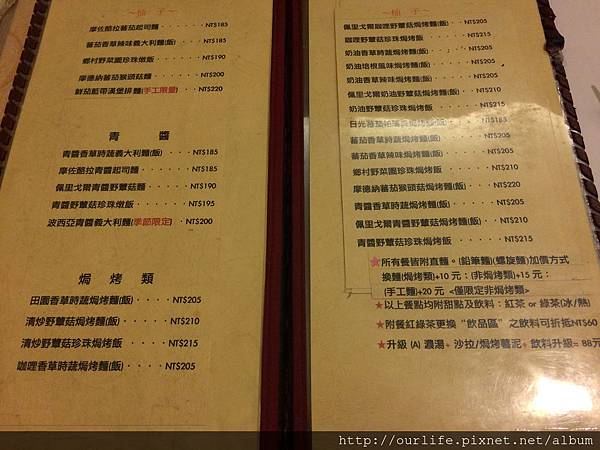 ～柚子～
摩佐酷拉蕃茄起司麵・・・NT$185
蕃茄香草辣味義大利麵(飯)・・NT$185
鄉村野菜園珍珠燉飯・・・・NT$190
摩德納蕃茄猴頭菇麵・・・・NT$200
鮮茄藍帶漢堡排麵(手工限量)・・NT$220
青 醬
青醬香草時蔬義大利麵(飯)・・NT$185
摩佐酷拉青醬起司麵・・・・NT$185
佩里戈爾青醬野蕈菇麵・・・NT$190
青醬野蕈菇珍珠燉飯・・・・NT$195
波西亞青醬義大利麵(季節限定)・・NT$200
焗 烤 類
田園香草時蔬焗烤麵(飯)・・・・・NT$205
清炒野蕈菇焗烤麵(飯)・・・・・NT$210
清炒野蕈菇珍珠焗烤飯・・・・NT$215
咖哩香草時蔬焗烤麵(飯)・・・・NT$205
～柚子～
佩里戈爾咖哩野蕈菇焗烤麵(飯)・・NT$205
咖哩野蕈菇珍珠焗烤飯・・・・NT$215
奶油香草時蔬焗烤麵(飯)・・・NT$205
奶油培根風味焗烤麵(飯)・・・NT$205
奶油香草辣味焗烤麵(飯)・・・NT$205
佩里戈爾奶油野蕈菇焗烤麵(飯)・・NT$210
奶油野蕈菇珍珠焗烤飯・・・・NT$215
NT$205
蕃茄香草時蔬焗烤麵(飯)・・・NT$205
蕃茄香草辣味焗烤麵(飯)・・・NT$205
鄉村野菜園珍珠焗烤飯・・・・NT$210
摩德納蕃茄猴頭菇焗烤麵(飯)・・NT$220
青醬香草時蔬焗烤麵(飯)・・・NT$205
佩里戈爾青醬野蕈菇焗烤麵(飯)・・NT$210
青醬野蕈菇珍珠焗烤飯・・・・NT$215
★所有餐皆附直麵。(鉛筆麵)(螺旋麵)加價方式
換麵(焗烤類)+10元；(非焗烤類)+15元；
(手工麵)+20元 <僅限定非焗烤類>
★以上餐點均附甜點及飲料：紅茶 or 綠茶(冰/熱)
★附餐紅綠茶更換“飲品區”之飲料可折抵NT$60
★升級 (A) 濃湯+ 沙拉/焗烤薯泥+ 飲料升級= 88元
http://ourlife.pixnet.net/album